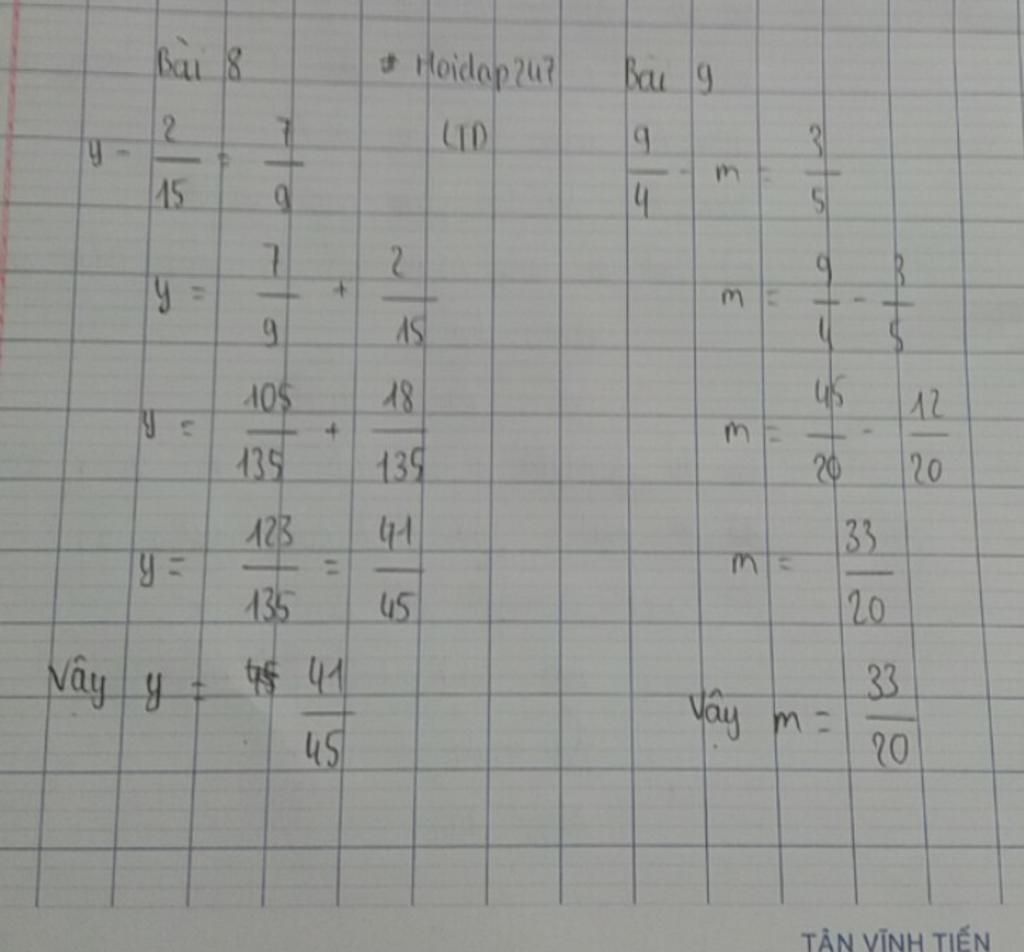 Bài 8
* Hoidap247
(TT)
y - 2/15 = 7/9
y = 7/9 + 2/15
y = 105/135 + 18/135
y = 123/135 = 41/45
Vậy y = 41/45
Bài 9
9/4 - m = 3/5
m = 9/4 - 3/5
m = 45/20 - 12/20
m = 33/20
Vậy m = 33/20
TÂN VĨNH TIẾN